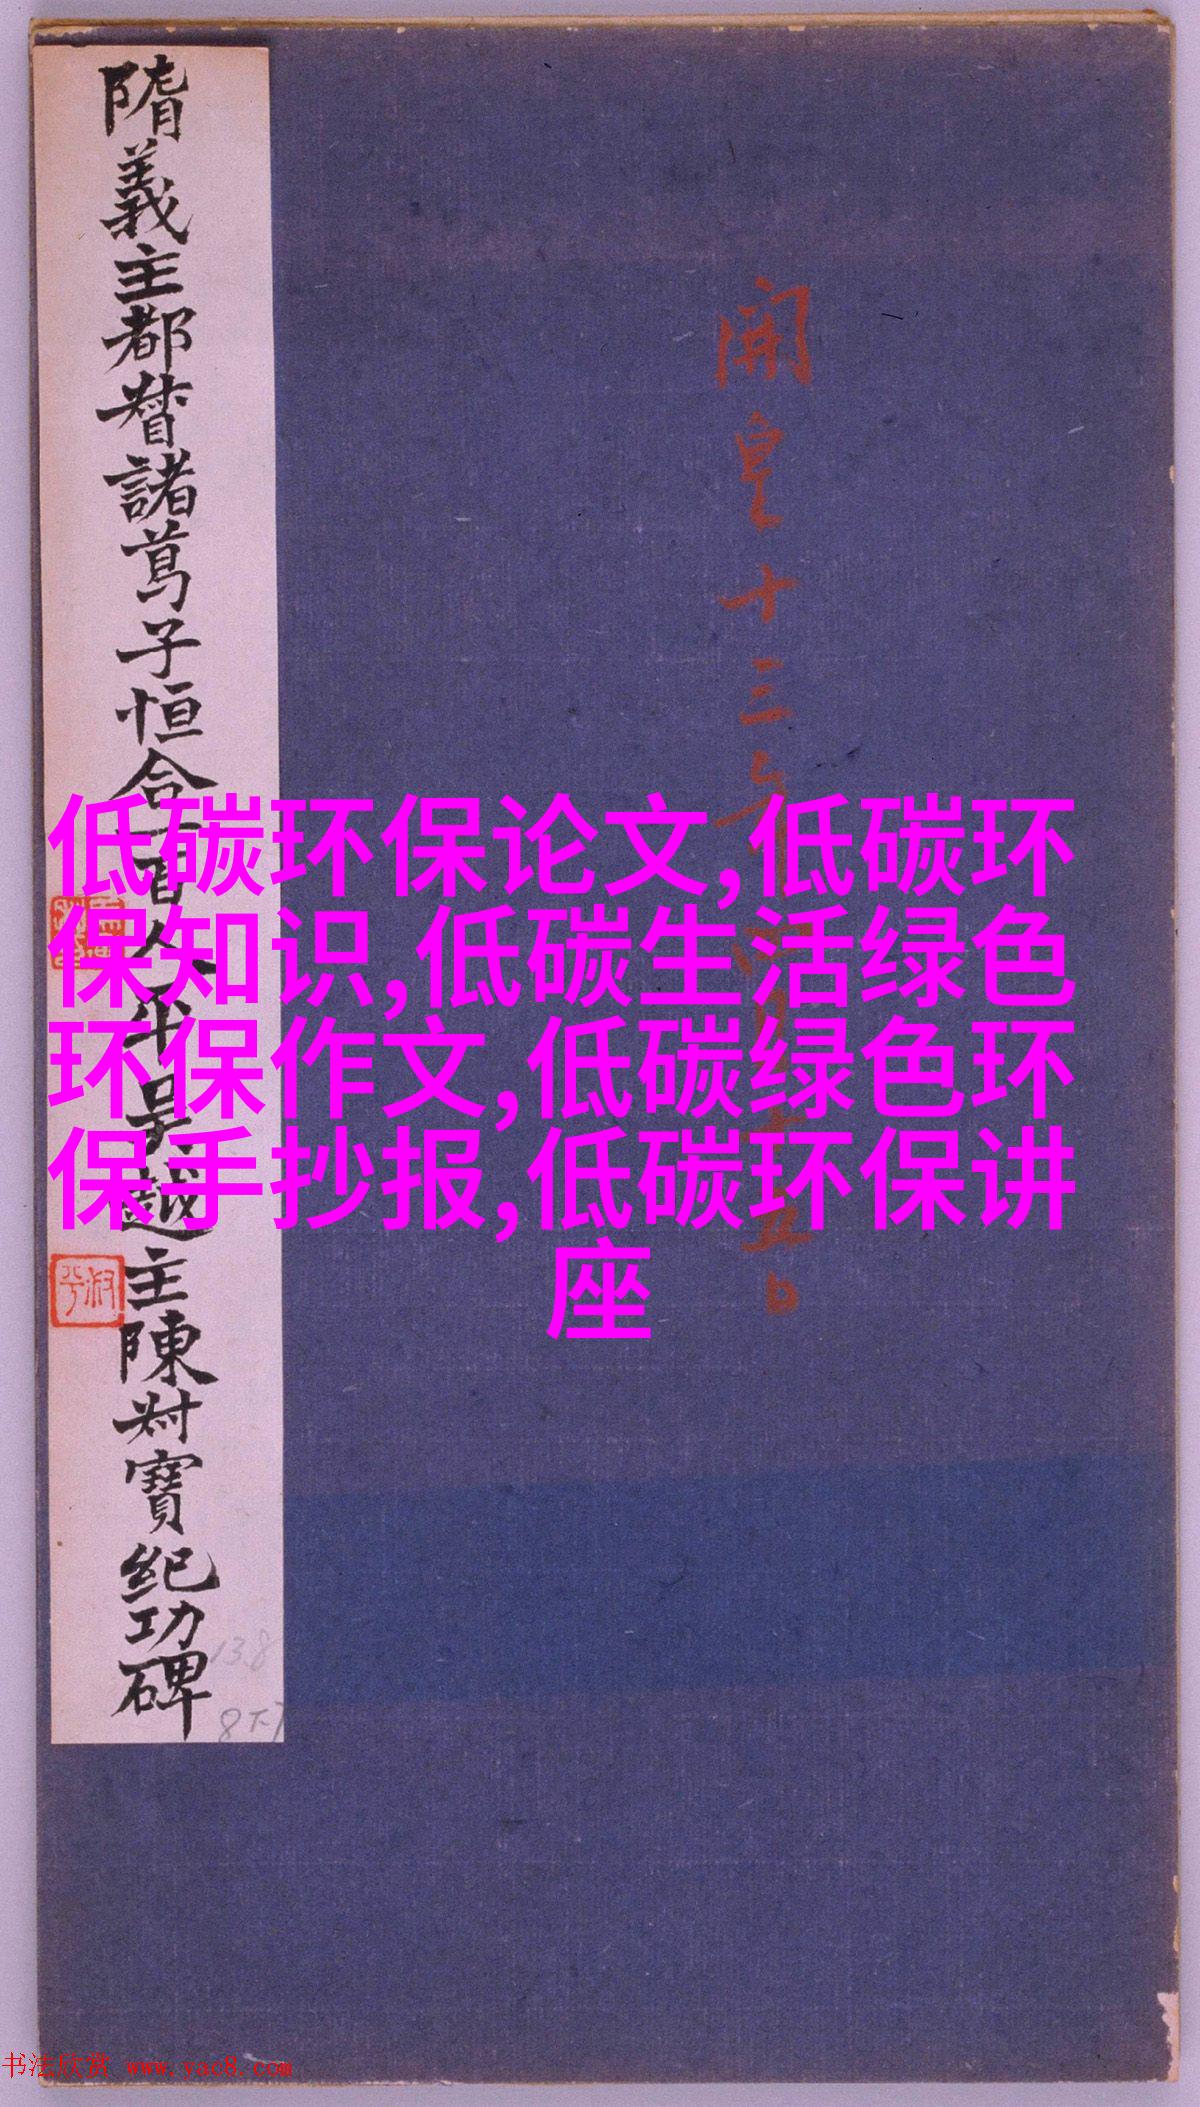 隋義主都督諸葛子恒合一百人平吳越主陳叔寶紀功碑
開皇十三年四月十五日
低碳环保论文,低碳环
保知识,低碳生活绿色
环保作文,低碳绿色环
保手抄报,低碳环保讲
座
138
书法欣赏 www.yac8.com